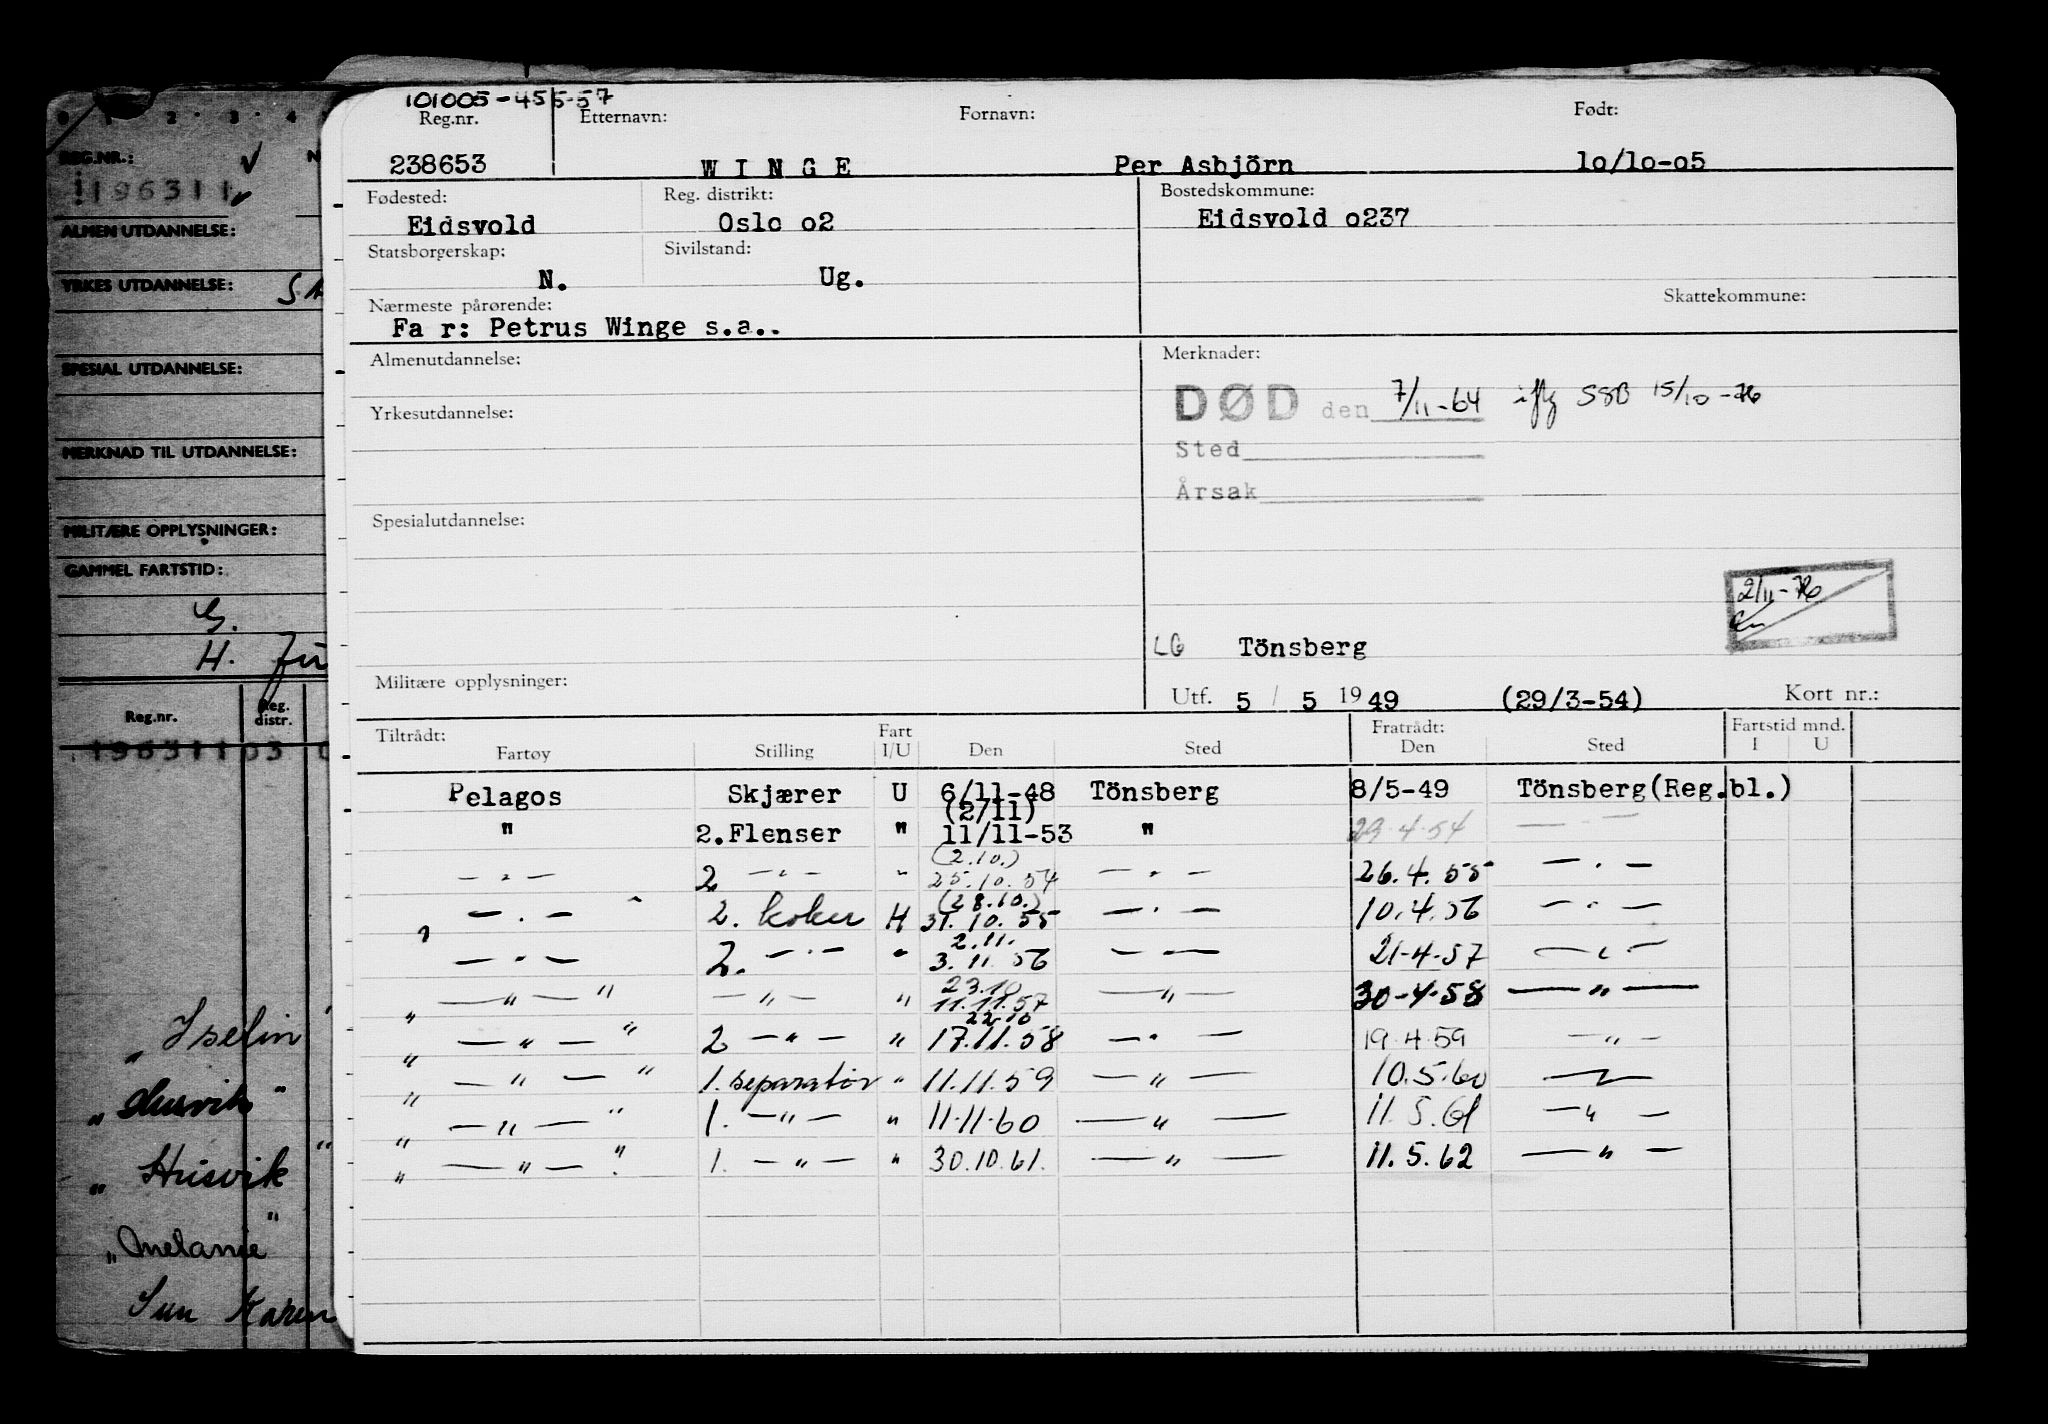 0 1 2 3 4
REG.NR.:
196311
ALMEN UTDANNELSE:
YRKES UTDANNELSE:
SPESIAL UTDANNELSE:
MERKNAD TIL UTDANNELSE:
MILITÆRE OPPLYSNINGER:
GAMMEL FARTSTID:
G.
H.
Reg.nr. Reg. distr.
196311 03
Iselin "
„ Husvik "
„ Husvik "
„ Melanie "
Sun Karen
101005-455-57
Reg.nr. Etternavn: Fornavn: Født:
238653 WINGE Per Asbjörn 1o/1o-o5
Fødested: Reg. distrikt: Bostedskommune:
Eidsvold Oslo o2 Eidsvold o237
Statsborgerskap: Sivilstand:
N. Ug.
Skattekommune:
Nærmeste pårørende:
Fa r: Petrus Winge s.a..
Almenutdannelse: Merknader:
DØD den 7/11-64 iflg SSB 15/10-76
Yrkesutdannelse:
Sted
Årsak
Spesialutdannelse:
2/11-76
LG Tönsberg
Militære opplysninger:
Utf. 5 / 5 1949 (29/3-54) Kort nr.:
Tiltrådt: Fart Fratrådt: Fartstid mnd.
Fartøy Stilling I/U Den Sted Den Sted I U
Pelagos Skjærer U 6/11-48 Tönsberg 8/5-49 Tönsberg(Reg.bl.)
(2/11)
" 2.Flenser " 11/11-53 " 29.4.54 — " —
(2.10.)
— " — 2 — " — " 25.10.54 — " — 26.4.55 — " —
(28.10.)
„ — " — " 2. koker H 31.10.55 — " — 10.4.56 — " —
2.11.
— " — 2. — " — " 3.11.56 — " — 21-4-57 — " —
23.10
„ — " — " — " — " 11.11.57 — " — 30-4-58 — " —
22.10
„ — " — " 2 — " — " 17.11.58 — " — 19.4.59 — " —
„ — " — " 1. separatør " 11.11.59 — " — 10.5.60 — " —
„ — " — " 1. — " — " 11-11-60 — " — 11.5.61 — " —
„ — " — " 1. — " — " 30.10.61. — " — 11.5.62 — " —